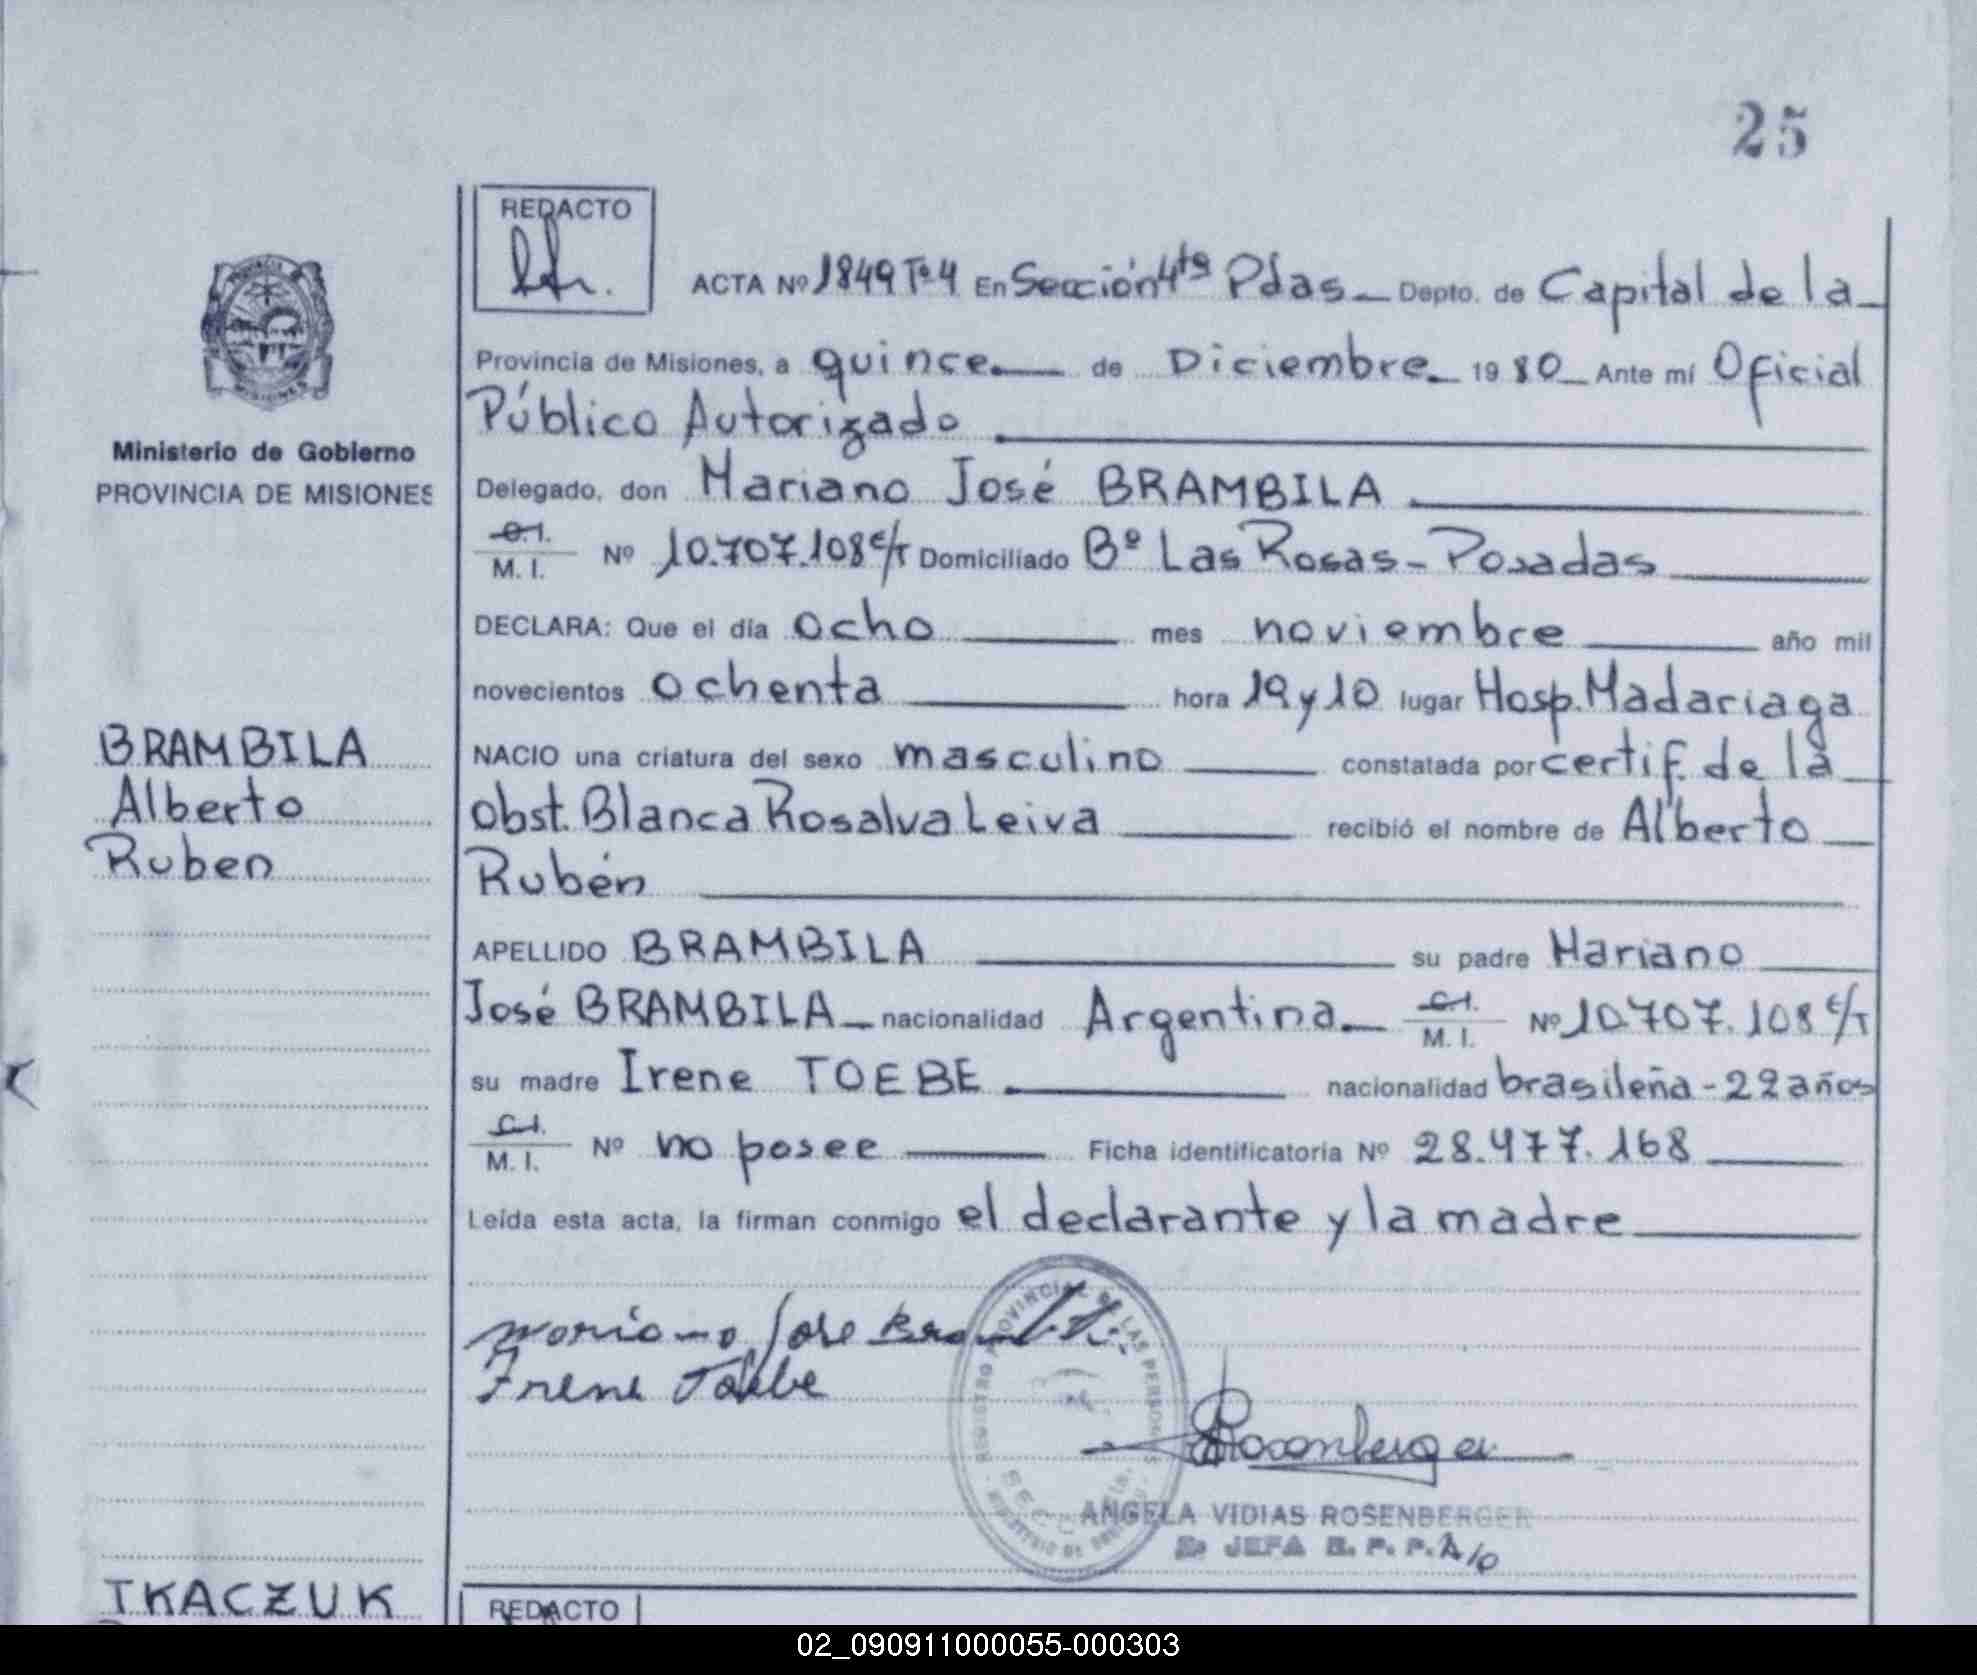 25
REDACTO
ACTA Nº 1849 Tº 4 En Sección 4ta Pdas. Depto. de Capital de la
Provincia de Misiones, a quince de Diciembre 1980 Ante mí Oficial
Público Autorizado
Ministerio de Gobierno
PROVINCIA DE MISIONES
Delegado, don Mariano José BRAMBILA
C.I.
M. I. Nº 10.707.108 c/T Domiciliado Bº Las Rosas - Posadas
DECLARA: Que el día ocho mes noviembre año mil
novecientos ochenta hora 19 y 10 lugar Hosp. Madariaga
BRAMBILA
Alberto
Ruben
NACIO una criatura del sexo masculino constatada por certif. de la
obst. Blanca Rosalva Leiva recibió el nombre de Alberto
Rubén
APELLIDO BRAMBILA su padre Mariano
José BRAMBILA nacionalidad Argentina C.I.
M. I. Nº 10.707.108 c/T
su madre Irene TOEBE nacionalidad brasileña - 22 años
C.I.
M. I. Nº no posee Ficha identificatoria Nº 28.477.168
Leída esta acta, la firman conmigo el declarante y la madre
Mariano Jose Brambila
Irene Toebe
REGISTRO PROVINCIAL DE LAS PERSONAS
Rosenberger
ANGELA VIDIAS ROSENBERGER
JEFA R. P. P. A/c
TKACZUK
REDACTO
02_090911000055-000303